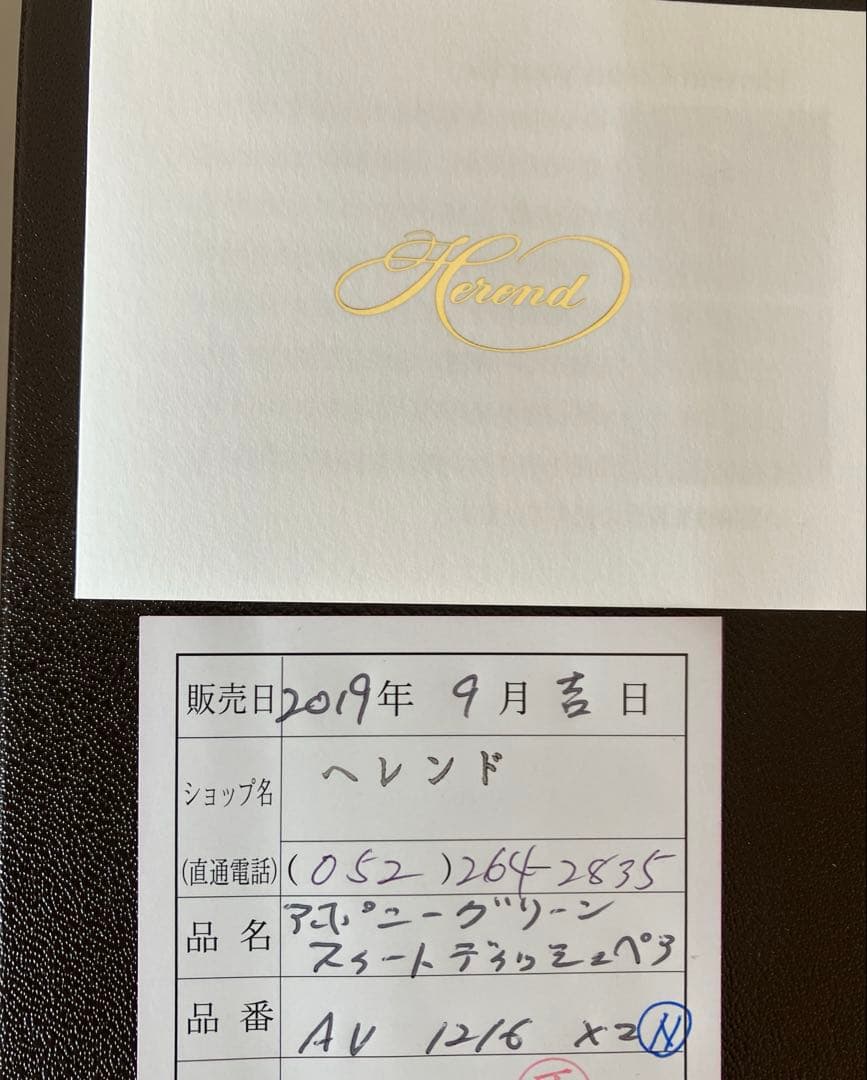 Herend
販売日 2019年 9月 吉日
ショップ名 ヘレンド
(直通電話) (052)264-2835
品名 アポニーグリーン
スィートディッシュペア
品番 AV 1216 ×2 N